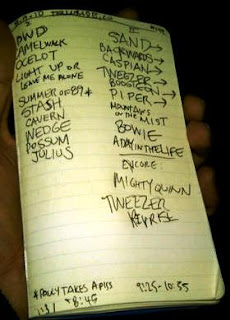 8.10.10 TELLURIDE, CO
I
DWD
CAMEL WALK
OCELOT
LIGHT UP OR
LEAVE ME ALONE
SUMMER OF 89*
STASH
CAVERN
WEDGE
POSSUM
JULIUS
II
SAND→
BACKWARDS→
CASPIAN→
TWEEZER→
BOOGIE ON→
PIPER→
MOUNTAINS
IN THE MIST
BOWIE
A DAY IN THE LIFE
ENCORE:
MIGHTY QUINN
TWEEZER
REPRISE
*POLLY TAKES A PISS
8:45
9:25-10:55